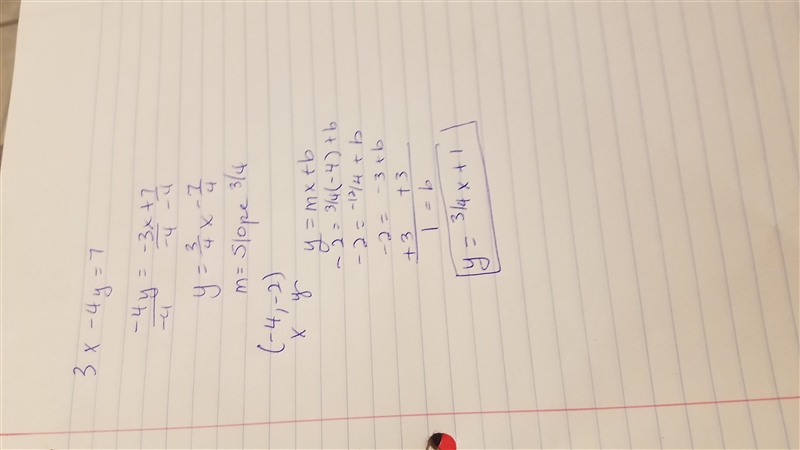 3x - 4y = 7
-4y/-4 = -3x/-4 + 7/-4
y = 3/4 x - 7/4
m = slope 3/4
(-4, -2)
x y
y = mx + b
-2 = 3/4(-4) + b
-2 = -12/4 + b
-2 = -3 + b
+3 +3
1 = b
y = 3/4x + 1